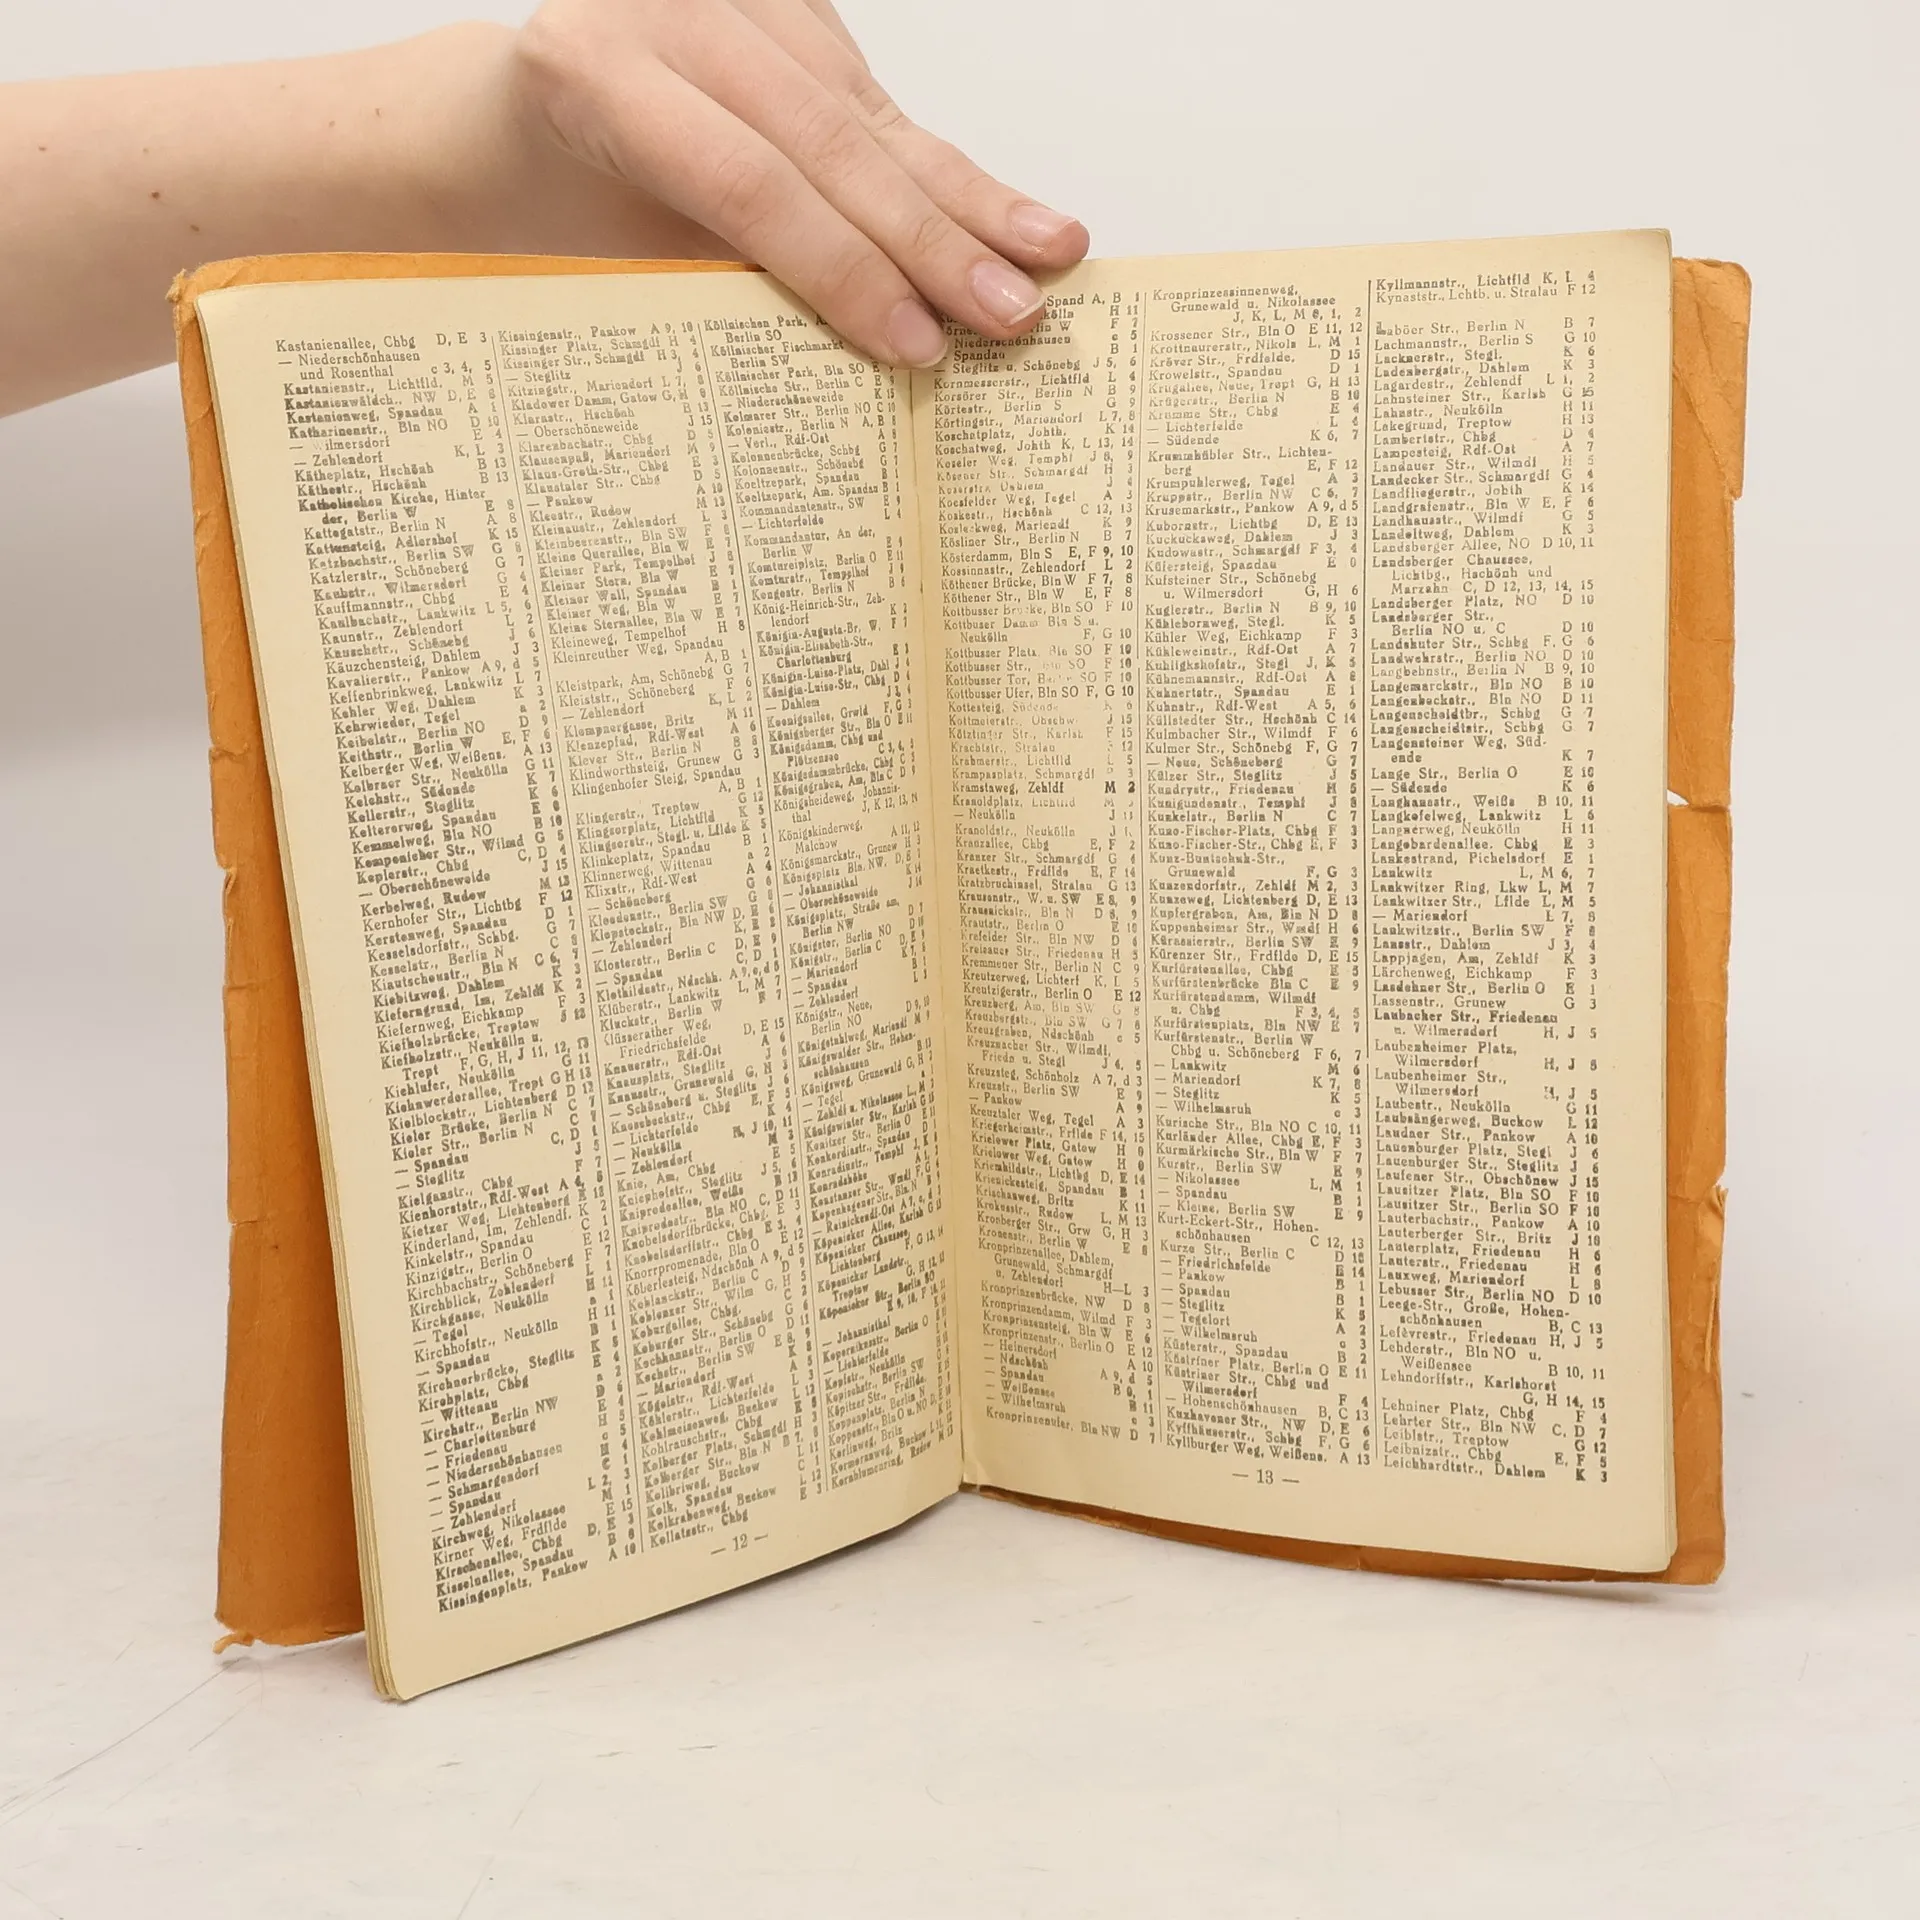 Kastanienallee, Chbg D, E 3
— Niederschönhausen
und Rosenthal c 3, 4, 5
Kastanienstr., Lichtfld. M 5
Kastanienwäldch., NW D, E 8
Kastanienweg, Spandau A 1
Katharinenstr., Bln NO D 10
— Wilmersdorf E 4
— Zehlendorf K, L 3
Kätheplatz, Hschönh B 13
Käthestr., Hschönh B 13
Katholischen Kirche, Hinter
der, Berlin W E 8
Kattegatstr., Berlin N A 8
Kattensteig, Adlershof K 15
Katzbachstr., Berlin SW G 8
Katzlerstr., Schöneberg G 7
Kaubstr., Wilmersdorf G 4
Kauffmannstr., Chbg E 4
Kaulbachstr., Lankwitz L 5, 6
Kaunstr., Zehlendorf L 2
Kauschstr., Schönebg J 6
Käuzchensteig, Dahlem J 3
Kavalierstr., Pankow A 9, d 5
Keffenbrinkweg, Lankwitz L 7
Kehler Weg, Dahlem K 3
Kehrwieder, Tegel a 2
Keibelstr., Berlin NO D 9
Keithstr., Berlin W E, F 6
Kelberger Weg, Weißens. A 13
Kelbraer Str., Neukölln G 11
Kelchstr., Südende K 7
Kellerstr., Steglitz K 6
Kellererweg, Spandau E 0
Kemmelweg, Bln NO B 10
Kempenicher Str., Wilmd G 5
Keplerstr., Chbg C, D 4
— Oberschöneweide J 15
Kerbelweg, Rudow M 13
Kernhofer Str., Lichtbg F 12
Kerstenweg, Spandau D 1
Kesselsdorfstr., Schbg. G 7
Kesselstr., Berlin N C 8
Kiautschoustr., Bln N C 6, 7
Kiebitzweg, Dahlem K 3
Kieferngrund, Im, Zehldf K 2
Kiefernweg, Eichkamp F 3
Kiefholzbrücke, Treptow
Kiefholzstr., Neukölln u.
Trept F, G, H, J 11, 12, 13
Kiehlufer, Neukölln G 11
Kiehnwerderallee, Trept GH 13
Kielblockstr., Lichtenberg D 12
Kieler Brücke, Berlin N C 7
Kieler Str., Berlin N C 7
— Spandau C, D 1
— Steglitz J 5
Kielganstr., Chbg F 7
Kienhorststr., Rdf-West A 4, 6
Kietzer Weg, Lichtenberg E 13
Kinderland, Im, Zehlendf. K 2
Kinkelstr., Spandau C 1
Kinzigstr., Berlin O E 12
Kirchbachstr., Schöneberg F 7
Kirchblick, Zehlendorf L 1
Kirchgasse, Neukölln H 11
— Tegel a 1
Kirchhofstr., Neukölln H 11
— Spandau B 1
Kirchnerbrücke, Steglitz K 5
Kirchplatz, Chbg E 4
— Wittenau a 2
Kirchstr., Berlin NW D 6
— Charlottenburg E 4
— Friedenau H 5
— Niederschönhausen c 5
— Schmargendorf H 4
— Spandau C 1
— Zehlendorf L 2, 3
Kirchweg, Nikolassee M 1
Kirner Weg, Frdflde E 15
Kirschenallee, Chbg D, E 3
Kisselnallee, Spandau B 0
Kissingenplatz, Pankow A 10
Kissingenstr., Pankow A 9, 10
Kissinger Platz, Schmgdf H 4
Kissinger Str., Schmgdf H 3, 4
— Steglitz J 6
Kitzingstr., Mariendorf L 7, 8
Kladower Damm, Gatow G, H 0
Klarastr., Hschönh B 13
— Oberschöneweide J 15
Klarenbachstr., Chbg D 5
Klausenpaß, Mariendorf M 9
Klaus-Groth-Str., Chbg E 3
Klaustaler Str., Chbg D 5
— Pankow A 10
Kleestr., Rudow M 13
Kleinaustr., Zehlendorf L 3
Kleinbeerenstr., Bln SW F 8
Kleine Querallee, Bln W E 7
Kleiner Park, Tempelhof J 8
Kleiner Stern, Bln W E 7
Kleiner Wall, Spandau B 1
Kleiner Weg, Bln W E 7
Kleine Sternallee, Bln W E 7
Kleineweg, Tempelhof H 8
Kleinreuther Weg, Spandau
A, B 1
Kleistpark, Am, Schönebg G 7
Kleiststr., Schöneberg F 6
— Zehlendorf K, L 2
Klempnergasse, Britz M 11
Klenzepfad, Rdf-West A 6
Klever Str., Berlin N B 8
Klindworthsteig, Grunew G 3
Klingenhofer Steig, Spandau
A, B 1
Klingerstr., Treptow G 12
Klingsorplatz, Lichtfld K 5
Klingsorstr., Stegl. u. Lflde K 5
Klinkeplatz, Spandau B 1
Klinnerweg, Wittenau a 2
Klixstr., Rdf-West A 4
— Schöneberg G 6
Kloedenstr., Berlin SW G 8
Klopstockstr., Bln NW D, E 6
— Zehlendorf K 2
Klosterstr., Berlin C D, E 9
— Spandau C, D 1
Klothildestr., Ndschh. A 9, c, d 5
Klüberstr., Lankwitz L, M 7
Kluckstr., Berlin W F 7
Klüsserather Weg,
Friedrichsfelde D, E 15
Knauerstr., Rdf-Ost A 6
Knausplatz, Steglitz J 6
Knausstr., Grunewald G, H 3
— Schöneberg u. Steglitz J 6
Knesebeckstr., Chbg E, F 5
— Lichterfelde K 4
— Neukölln H, J 10, 11
— Zehlendorf M 3
Knie, Am, Chbg E 5
Kniephofstr., Steglitz J 5, 6
Kniprodeallee, Weißs B 13
Kniprodestr., Bln NO C, D 11
Knobelsdorffbrücke, Chbg. E 3
Knobelsdorffstr., Chbg E 3, 4
Knorrpromenade, Bln O E 12
Köberlesteig, Ndschönh A 9, d 5
Koblanckstr., Berlin C D 9
Koblenzer Str., Wilm G, H 5
Koburgallee, Chbg. C 2
Koburger Str., Schönebg G 6
Kochhannstr., Berlin O D 11
Kochstr., Berlin SW E 8, 9
— Mariendorf K 8
Kögelstr., Rdf-West A 5
Köhlerstr., Lichterfelde L 3
Kohlmeisenweg, Buckow L 12
Kohlrauschstr., Chbg E 5
Kolberger Platz, Schmgdf H 3
Kolberger Str., Bln N B 7, 8
Kolibriweg, Buckow L 11
Kolk, Spandau C 1
Kolkrabenweg, Buckow L 12
Kollatzstr., Chbg E 3
Köllnischen Park,
Berlin SO
Köllnischer Fischmarkt
Berlin SW
Köllnischer Park, Bln SO E
Köllnische Str., Berlin C E 9
— Niederschöneweide K 15
Kolmarer Str., Berlin NO C 10
Koloniestr., Berlin N A, B 8
— Verl., Rdf-Ost A 8
Kolonnenbrücke, Schbg G 7
Kolonnenstr., Schönebg G 7
Koeltzepark, Spandau B 1
Koeltzepark, Am, Spandau B 1
Kommandantenstr., SW E 9
— Lichterfelde L 4
Kommandantur, An der,
Berlin W E 8
Komtureiplatz, Berlin O E 11
Komturstr., Tempelhof J 9
Kongostr., Berlin N B 6
König-Heinrich-Str., Zeh-
lendorf K 2
Königin-Augusta-Br., W. F 7
Königin-Elisabeth-Str.,
Charlottenburg E 3
Königin-Luise-Platz, Dahl J 4
Königin-Luise-Str., Chbg D 4
— Dahlem J 3, 4
Koenigsallee, Grwld F, G 3
Königsberger Str., Bln O E 11
Königsdamm, Chbg und
Plötzensee C 3, 4, 5
Königsdammbrücke, Chbg C 5
Königsgraben, Am, Bln C D 9
Königsheideweg, Johannis-
thal J, K 12, 13, 14
Königskinderweg,
Malchow A 11, 12
Königsmarckstr., Grunew H 3
Königsplatz Bln. NW. D, E 7
— Johannisthal K 14
— Oberschöneweide J 14
Königsplatz, Straße am,
Berlin NW D 7
Königstor, Berlin NO D 10
Königstr., Berlin C D, E 9
— Mariendorf K 7, 8
— Spandau B 1
— Zehlendorf L 1
Königstr., Neue,
Berlin NO D 9, 10
Königstuhlweg, Mariendf M 9
Königswalder Str., Hohen-
schönhausen B 13
Königsweg, Grunewald G, H 2
— Tegel
— Zehldf u. Nikolassee L, M 2
Königswinter Str., Karlsh G 15
Konitzer Str., Berlin O E 11
Konkordiastr., Spandau D 1
Konradinstr., Tempelhf J, K 8
Konradshöhe A 1
Konstanzer Str., Wmdf F, G 4
Kopenhagener Str., Bln. N B 9
— Reinickendf-Ost A 7, c, d 3
Köpenicker Allee, Karlsh G 15
Köpenicker Chaussee,
Lichtenberg F, G 13, 14
Köpenicker Landstr.,
Treptow G, H 12, 13
Köpenicker Str., Berlin SO
E 9, 10, F 10, 11
— Johannisthal
Kopernikusstr., Berlin O
— Lichterfelde
Kopfstr., Neukölln
Kopischstr., Berlin SW
Köpitzer Str., Frdflde.
Koppenplatz, Berlin N D
Koppenstr., Bln O u. NO D, E
Korinweg, Britz
Kormoranweg, Buckow L 11, 12
Kornblumenring, Rudow M 13
— 12 —
Spand A, B 1
kölln H 11
lin W F 7
Niederschönhausen c 5
— Spandau B 1
— Steglitz u. Schönebg J 5, 6
Kornmesserstr., Lichtfld L 4
Korsörer Str., Berlin N B 9
Körtestr., Berlin S G 9
Körtingstr., Mariendorf L 7, 8
Koschatplatz, Johth. K 14
Koschatweg, Johth K, L 13, 14
Koseler Weg, Tempelhf J 8, 9
Kösener Str., Schmargdf H 3
Koserstr. Dahlem J 4
Koesfelder Weg, Tegel A 3
Koskestr., Hschönh C 12, 13
Kosleckweg, Mariendf K 9
Kösliner Str., Berlin N B 7
Kösterdamm, Bln S E, F 9, 10
Kossinnastr., Zehlendorf L 2
Köthener Brücke, Bln W F 7, 8
Köthener Str., Bln W E, F 8
Kottbusser Brücke, Bln SO F 10
Kottbuser Damm Bln S u.
Neukölln F, G 10
Kottbusser Platz, Bln SO F 10
Kottbusser Str., Bln SO F 10
Kottbusser Tor, Berlin SO F 10
Kottbusser Ufer, Bln SO F, G 10
Kottesteig, Südende K 6
Kottmeierstr., Obschw J 15
Kötztinger Str., Karlsh F 15
Krachtstr., Stralau F 12
Krahmerstr., Lichtfld L 5
Krampasplatz, Schmargdf H 3
Kramstaweg, Zehldf M 2
Kranoldplatz, Lichtfld M
— Neukölln J 11
Kranoldstr., Neukölln J
Kranzallee, Chbg E, F 2
Kranzer Str., Schmargdf G 4
Kraetkestr., Frdflde E, F 14
Kratzbruchinsel, Stralau G 13
Krausenstr., W. u. SW E 8, 9
Krausnickstr., Bln N D 8, 9
Krautstr., Berlin O E 10
Krefelder Str., Bln NW D 6
Kreisauer Str., Friedenau H 5
Kremmener Str., Berlin N C 9
Kreutzerweg, Lichterf K, L 5
Kreutzigerstr., Berlin O E 12
Kreuzberg, Am, Bln SW G 8
Kreuzbergstr., Bln SW G 7 8
Kreuzgraben, Ndschönh c 5
Kreuznacher Str., Wilmdf,
Friedn u. Stegl J 4, 5
Kreuzsteg, Schönholz A 7, d 3
Kreuzstr., Berlin SW E 9
— Pankow A 9
Kreuztaler Weg, Tegel A 3
Kriegerheimstr., Frflde F 14, 15
Krielower Platz, Gatow H 0
Krielower Weg, Gatow H 0
Kriemhildstr., Lichtbg D, E 14
Krienickesteig, Spandau B 1
Krischanweg, Britz K 11
Krokusstr., Rudow L, M 13
Kronberger Str., Grw G, H 3
Kronenstr., Berlin W E 8
Kronprinzenallee, Dahlem,
Grunewald, Schmargdf
u. Zehlendorf H—L 3
Kronprinzenbrücke, NW D 8
Kronprinzendamm, Wilmd F 3
Kronprinzensteig, Bln W E 6
Kronprinzenstr., Berlin O E 12
— Heinersdorf A 10
— Ndschönh A 9, d 5
— Spandau B 0, 1
— Weißensee B 11
— Wilhelmsruh c 3
Kronprinzenufer, Bln NW D 7
Kronprinzessinnenweg,
Grunewald u. Nikolassee
J, K, L, M 0, 1, 2
Krossener Str., Bln O E 11, 12
Krottnaurerstr., Nikols L, M 1
Kröver Str., Frdfelde, D 15
Krowelstr., Spandau D 1
Krugallee, Neue, Trept G, H 13
Krügerstr., Berlin N B 10
Krumme Str., Chbg E 4
— Lichterfelde L 4
— Südende K 6, 7
Krummhübler Str., Lichten-
berg E, F 12
Krumpuhlerweg, Tegel A 3
Kruppstr., Berlin NW C 6, 7
Krusemarkstr., Pankow A 9, d 5
Kubornstr., Lichtbg D, E 13
Kuckucksweg, Dahlem J 3
Kudowastr., Schmargdf F 3, 4
Küfersteig, Spandau E 0
Kufsteiner Str., Schönebg
u. Wilmersdorf G, H 6
Kuglerstr., Berlin N B 9, 10
Kühlebornweg, Stegl. K 5
Kühler Weg, Eichkamp F 3
Kühleweinstr., Rdf-Ost A 7
Kuhligkshofstr., Stegl J, K 5
Kühnemannstr., Rdf-Ost A 8
Kuhnertstr., Spandau E 1
Kuhnstr., Rdf-West A 5, 6
Küllstedter Str., Hschönh C 14
Kulmbacher Str., Wilmdf F 6
Kulmer Str., Schönebg F, G 7
— Neue, Schöneberg G 7
Külzer Str., Steglitz J 5
Kundrystr., Friedenau H 5
Kunigundenstr., Temphf J 8
Kunkelstr., Berlin N C 7
Kuno-Fischer-Platz, Chbg F 3
Kuno-Fischer-Str., Chbg E, F 3
Kunz-Buntschuh-Str.,
Grunewald F, G 3
Kunzendorfstr., Zehldf M 2, 3
Kunzeweg, Lichtenberg D, E 13
Kupfergraben, Am, Bln N D 8
Kuppenheimer Str., Wmdf H 6
Kürassierstr., Berlin SW E 9
Kürenzer Str., Frdflde D, E 15
Kurfürstenallee, Chbg E 5
Kurfürstenbrücke Bln C E 9
Kurfürstendamm, Wilmdf
u. Chbg F 3, 4, 5
Kurfürstenplatz, Bln NW E 7
Kurfürstenstr., Berlin W
Chbg u. Schöneberg F 6, 7
— Lankwitz M 6
— Mariendorf K 7, 8
— Steglitz K 5
— Wilhelmsruh c 3
Kurische Str., Bln NO C 10, 11
Kurländer Allee, Chbg E, F 3
Kurmärkische Str., Bln W F 7
Kurstr., Berlin SW E 9
— Nikolassee L, M 1
— Spandau B 1
— Kleine, Berlin SW E 9
Kurt-Eckert-Str., Hohen-
schönhausen C 12, 13
Kurze Str., Berlin C D 10
— Friedrichsfelde E 14
— Pankow B 1
— Spandau B 1
— Steglitz K 5
— Tegelort A 2
— Wilhelmsruh c 3
Küsterstr., Spandau B 2
Küstriner Platz, Berlin O E 11
Küstriner Str., Chbg und
Wilmersdorf F 4
— Hohenschönhausen B, C 13
Kuxhavener Str., NW D, E 6
Kyffhäuserstr., Schbg F, G 6
Kyllburger Weg, Weißens. A 13
Kyllmannstr., Lichtfld K, L 4
Kynaststr., Lchtb. u. Stralau F 12
Laböer Str., Berlin N B 7
Lachmannstr., Berlin S G 10
Lacknerstr., Stegl. K 6
Ladenbergstr., Dahlem K 3
Lagardestr., Zehlendf L 1, 2
Lahnsteiner Str., Karlsh G 15
Lahnstr., Neukölln H 11
Lakegrund, Treptow H 13
Lambertstr., Chbg D 4
Lampesteig, Rdf-Ost A 7
Landauer Str., Wilmdf H 5
Landecker Str., Schmargdf G 4
Landfliegerstr., Johth K 14
Landgrafenstr., Bln W E, F 6
Landhausstr., Wilmdf G 5
Landoltweg, Dahlem K 3
Landsberger Allee, NO D 10, 11
Landsberger Chaussee,
Lichtbg., Hschönh und
Marzahn C, D 12, 13, 14, 15
Landsberger Platz, NO D 10
Landsberger Str.,
Berlin NO u. C D 10
Landshuter Str., Schbg F, G 6
Landwehrstr., Berlin NO D 10
Langbehnstr., Berlin N B 9, 10
Langemarckstr., Bln NO B 10
Langenbeckstr., Bln NO D 11
Langenscheidtbr., Schbg G 7
Langenscheidtstr., Schbg G 7
Langensteiner Weg, Süd-
ende K 7
Lange Str., Berlin O E 10
— Südende K 6
Langhansstr., Weißs B 10, 11
Langkofelweg, Lankwitz L 6
Langnerweg, Neukölln H 11
Langobardenallee, Chbg E 3
Lankestrand, Pichelsdorf E 1
Lankwitz L, M 6, 7
Lankwitzer Ring, Lkw L, M 7
Lankwitzer Str., Lflde L, M 5
— Mariendorf L 7, 8
Lankwitzstr., Berlin SW F 8
Lansstr., Dahlem J 3, 4
Lappjagen, Am, Zehldf K 3
Lärchenweg, Eichkamp F 3
Lasdehner Str., Berlin O E 1
Lassenstr., Grunew G 3
Laubacher Str., Friedenau
u. Wilmersdorf H, J 5
Laubenheimer Platz,
Wilmersdorf H, J 5
Laubenheimer Str.,
Wilmersdorf H, J 5
Laubestr., Neukölln G 11
Laubsängerweg, Buckow L 12
Laudaer Str., Pankow A 10
Lauenburger Platz, Stegl J 6
Lauenburger Str., Steglitz J 6
Laufener Str., Obschönew J 15
Lausitzer Platz, Bln SO F 10
Lausitzer Str., Berlin SO F 10
Lauterbachstr., Pankow A 10
Lauterberger Str., Britz J 10
Lauterplatz, Friedenau H 6
Lauterstr., Friedenau H 6
Lauxweg, Mariendorf L 8
Lebusser Str., Berlin NO D 10
Leege-Str., Große, Hohen-
schönhausen B, C 13
Lefèvrestr., Friedenau H, J 5
Lehderstr., Bln NO u.
Weißensee B 10, 11
Lehndorffstr., Karlshorst
G, H 14, 15
Lehniner Platz, Chbg F 4
Lehrter Str., Bln NW C, D 7
Leiblstr., Treptow G 12
Leibnizstr., Chbg E, F 5
Leichhardtstr., Dahlem K 3
— 13 —